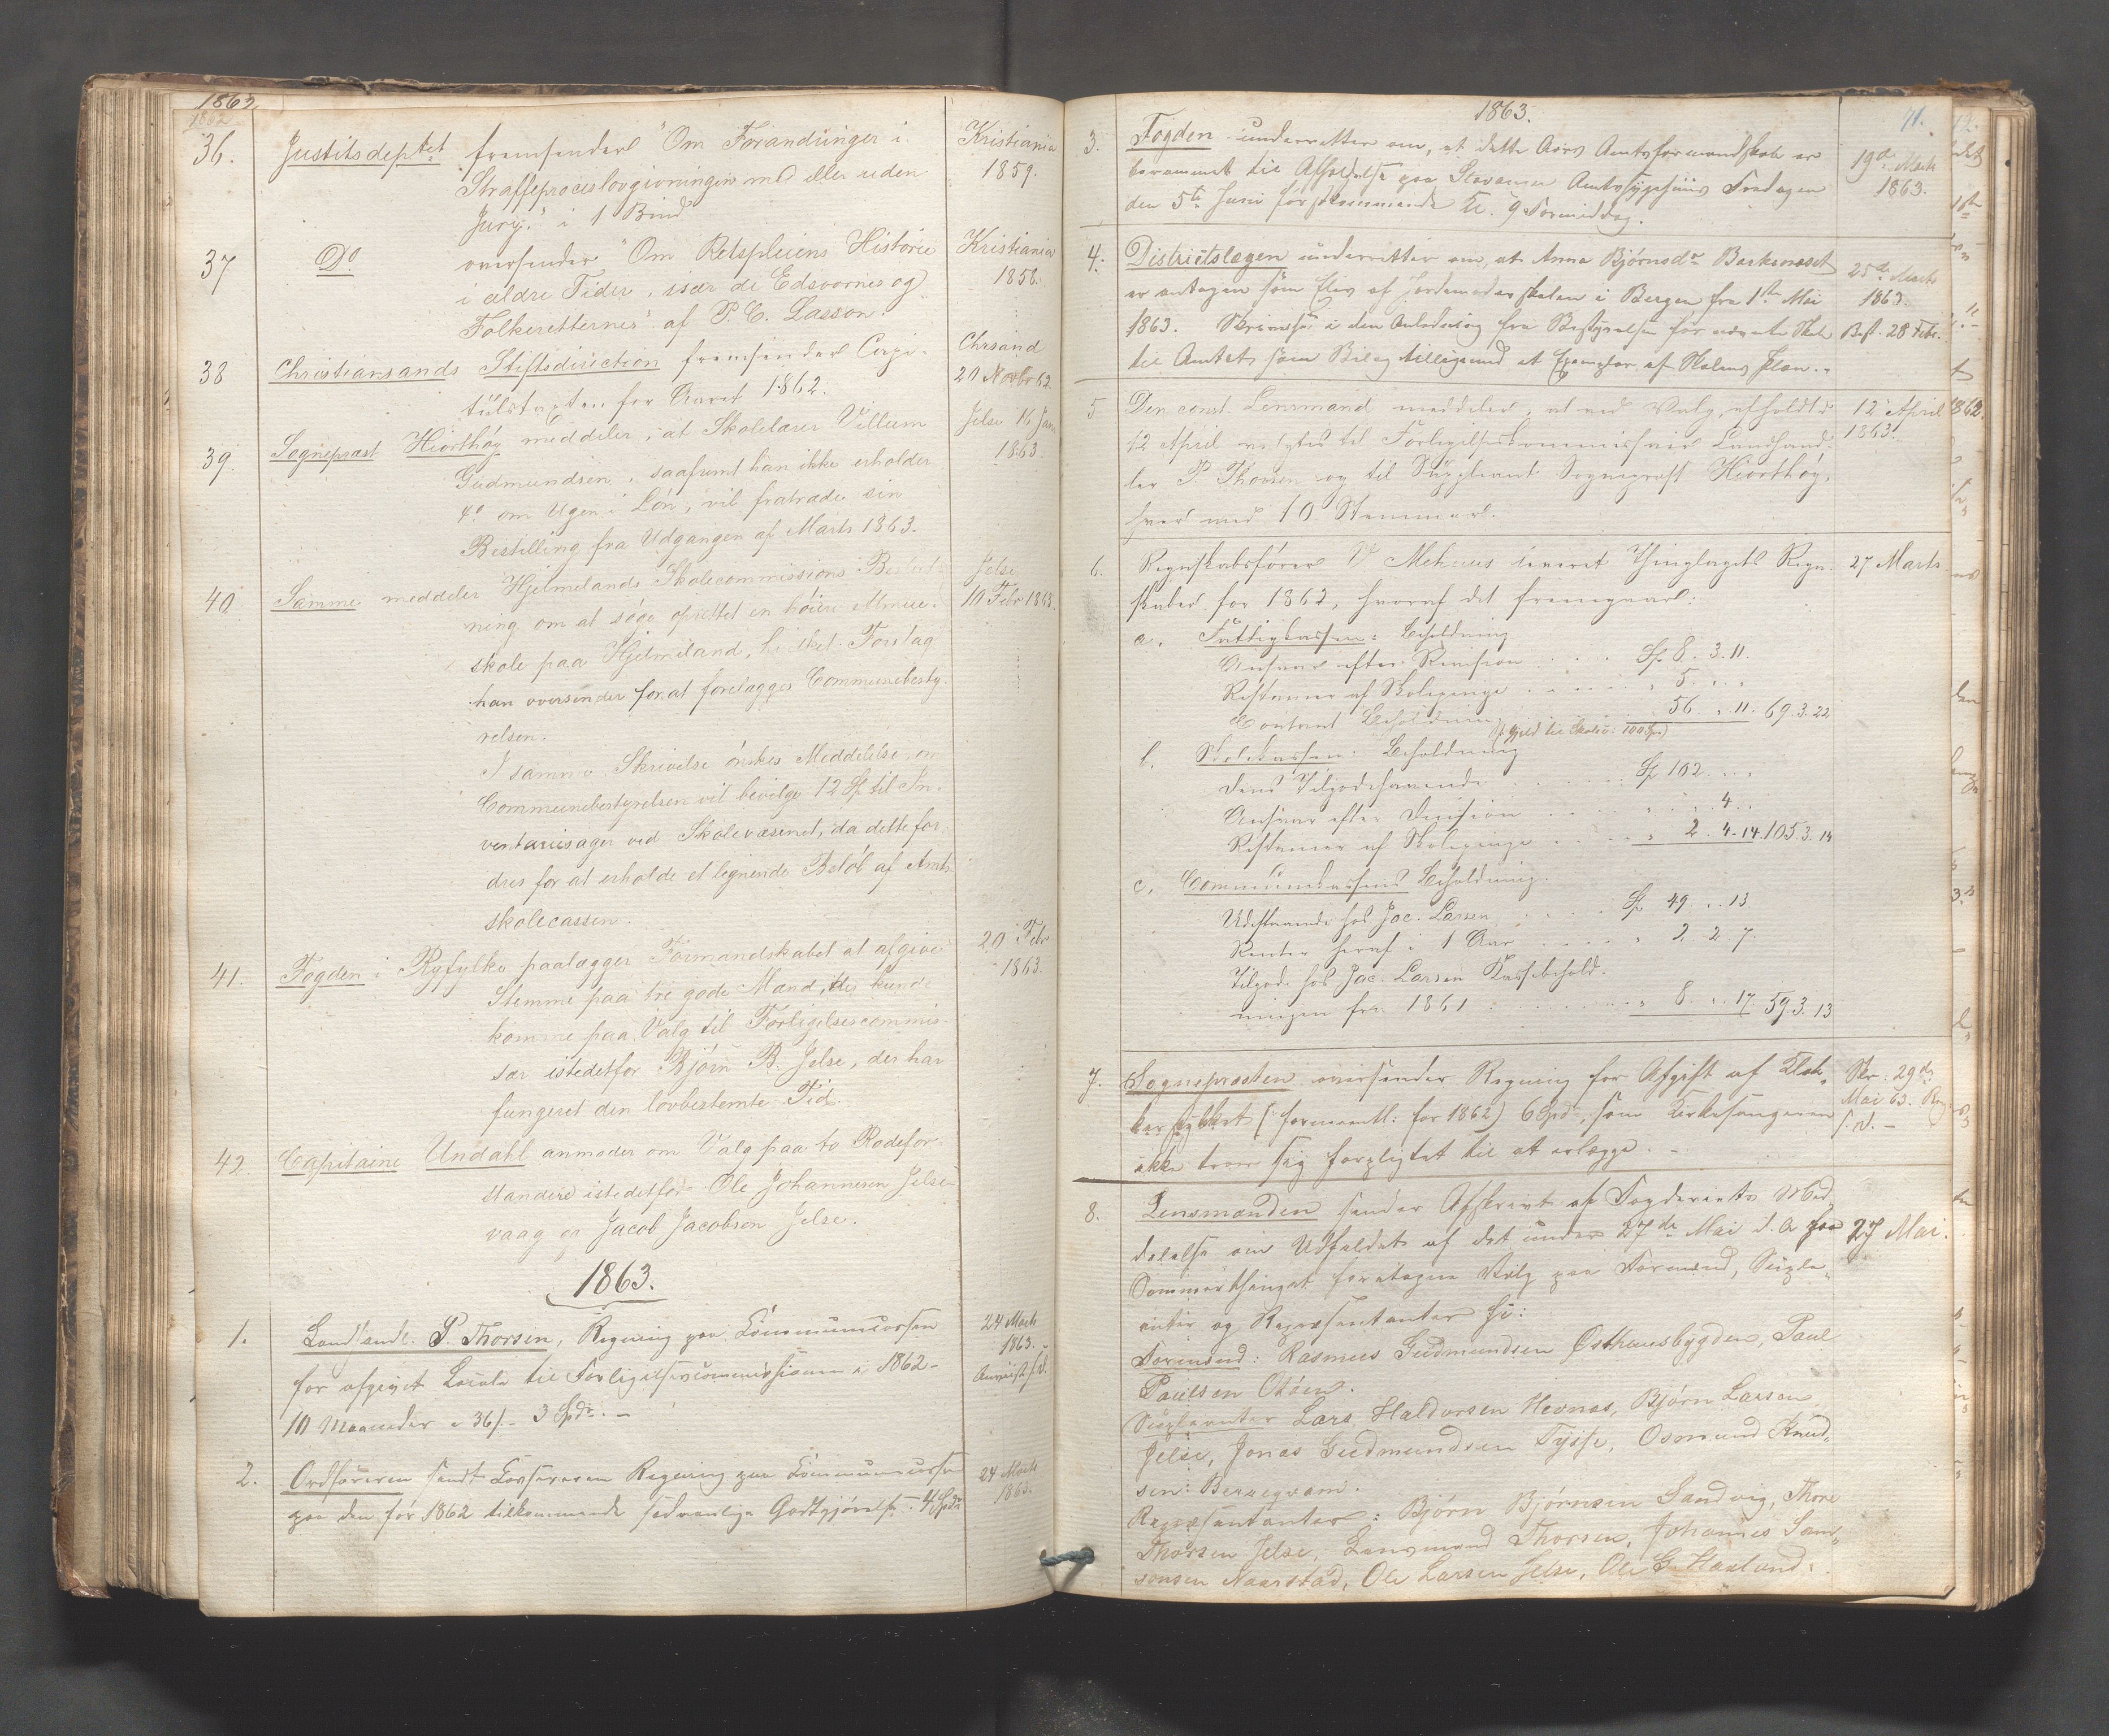 1863
1862
36. Justitsdeptet fremsender "Om Forandringer i Kristiania
Straffeproceslovgivningen med eller uden 1859.
Jury." i 1 Bind
37 Do oversender "Om Retspleiens Historie Kristiania
i ældre Tider, især de Edsvornes og 1858.
Folkeretterne" af P. C. Lasson.
38 Christiansands Stiftsdirection fremsender Capi- Chrsand
telstaxten for Aaret 1862. 20 Novbr 62
39. Sognepræst Hiorthøy meddeler, at Skolelærer Villum Jelse 16 Jan
Gudmundsen, saafremt han ikke erholder 1863
om Ugen i Løn, vil fratræde sin
Bestilling fra Udgangen af Marts 1863.
40 Samme meddeler Hjelmelands Skolecommissions Jelse
ning om at søge oprettet en høiere Almue- 10 Febr 1863.
skole paa Hjelmeland, hvilket Forslag
han oversender for at forelægges Communebesty-
relsen.
I samme Skrivelse ønskes Meddelelse om
Communebestyrelsen vil bevilge 12 Sp til In-
ventariesager ved Skolevæsenet, da dette for-
dres for at erholde et lignende Beløb af Amts-
skolecassen.
41. Fogden i Ryfylke paalægger Formandskabet at afgive 20 Febr
Stemme paa tre gode Mænd, der kunde 1863.
komme paa Valg til Forligelsescommis-
sær istedetfor Bjørn B. Jelse, der har
fungeret den lovbestemte Tid.
42. Capitaine Undahl anmoder om Valg paa to Rodefor-
standere istedetfor Ole Johannesen Jelse-
vaag og Jacob Jacobsen Jelse.
1863.
1. Landhandl. P. Thorsen, Regning paa Communecassen 24 Marts
for afgivet Locale til Forligelsescommissionen i 1862 - 1863.
10 Maaneder a 36 s. - 3 Spdr. -
2. Ordføreren sendt Regning paa Communecassen 24 Marts
paa den for 1862 tilkommende sædvanlige Godtgjørelse. 4 Spdr 1863.
1863. 71.
3. Fogden underretter om, at dette Aars Amtsformandskab er 19de Marts
berammet til Afholdelse paa Stavanger Amtssygehuus Fredagen 1863.
den 5te Juni førstkommende Kl. 9 Formiddag.
4. Districtslægen underretter om, at Anna Bjørnsdr Barkeneset 25de Marts
er antagen som Elev af Jordemoderskolen i Bergen fra 1ste Mai 1863.
1863. Skrivelse i den Anledning fra Bestyrelsen for nævnte Skole 28 Febr.
til Amtet som Bilag tilligemed et Exemplar af Skolens Plan.
5 Den const. Lensmand meddeler, at ved Valg, afholdt 12 April
12 April valgtes til Forligelseskommissair Landhand- 1863.
ler P. Thorsen og til Suppleant Sognepræst Hiorthøy,
hver med 10 Stemmer.
6. Regnskabsfører V. Mehuus leveret Thinglagets Regn- 27 Marts
skaber for 1862, hvoraf det fremgaar:
a. Fattigkassen: Beholdning
Ansvar efter Revision . . . Sp 8. 3. 11.
Restancer af Skolepenge . . . " 5. . .
Contant Beholdning 56 " 11. 69. 3. 22
b. Skolekassen: Beholdning
dens Tilgodehavende . . . Sp 102. . .
Ansvar efter Decision . . . " " 4. .
Restancer af Skolepenge . . . " 2. 4. 14. 105. 3. 14
c. Communekassens Beholdning.
Udestaaende hos Jac. Larsen . . . Sp 49 . . 13.
Renter heraf i 1 Aar . . . " 2 2 7.
Tilgode hos Jac. Larsen Kassebehold-
ningen fra 1861 . . . " 8 . . 17. 59. 3. 13
7. Sognepræsten oversender Regning for Afgift af Klok- Skr. 29de
(formentl: for 1862) 6 Spd, som Kirkesangeren Mai 63.
ikke troer sig forpligtet til at erlægge. -
8. Lensmanden sender Afskrivt af Fogderiets Med-
delelse om Udfaldet af det under 27de Mai d. A paa 27 Mai.
Sommerthinget foretagne Valg paa Formænd, Supple-
anter og Repræsentanter
Formænd: Rasmus Gudmundsen Østhuusbygden, Paul
Paulsen
Suppleanter Lars Haldorsen Hevnes, Bjørn Larsen
Jelse, Jonas Gudmundsen Tysse, Osmund Knud-
sen:
Repræsentanter: Bjørn Bjørnsen Sandvig, Thore
Thorsen Jelse, Lensmand Thorsen, Johannes Sam-
sonsen Naarstad, Ole Larsen Jelse, Ole G. Haaland.